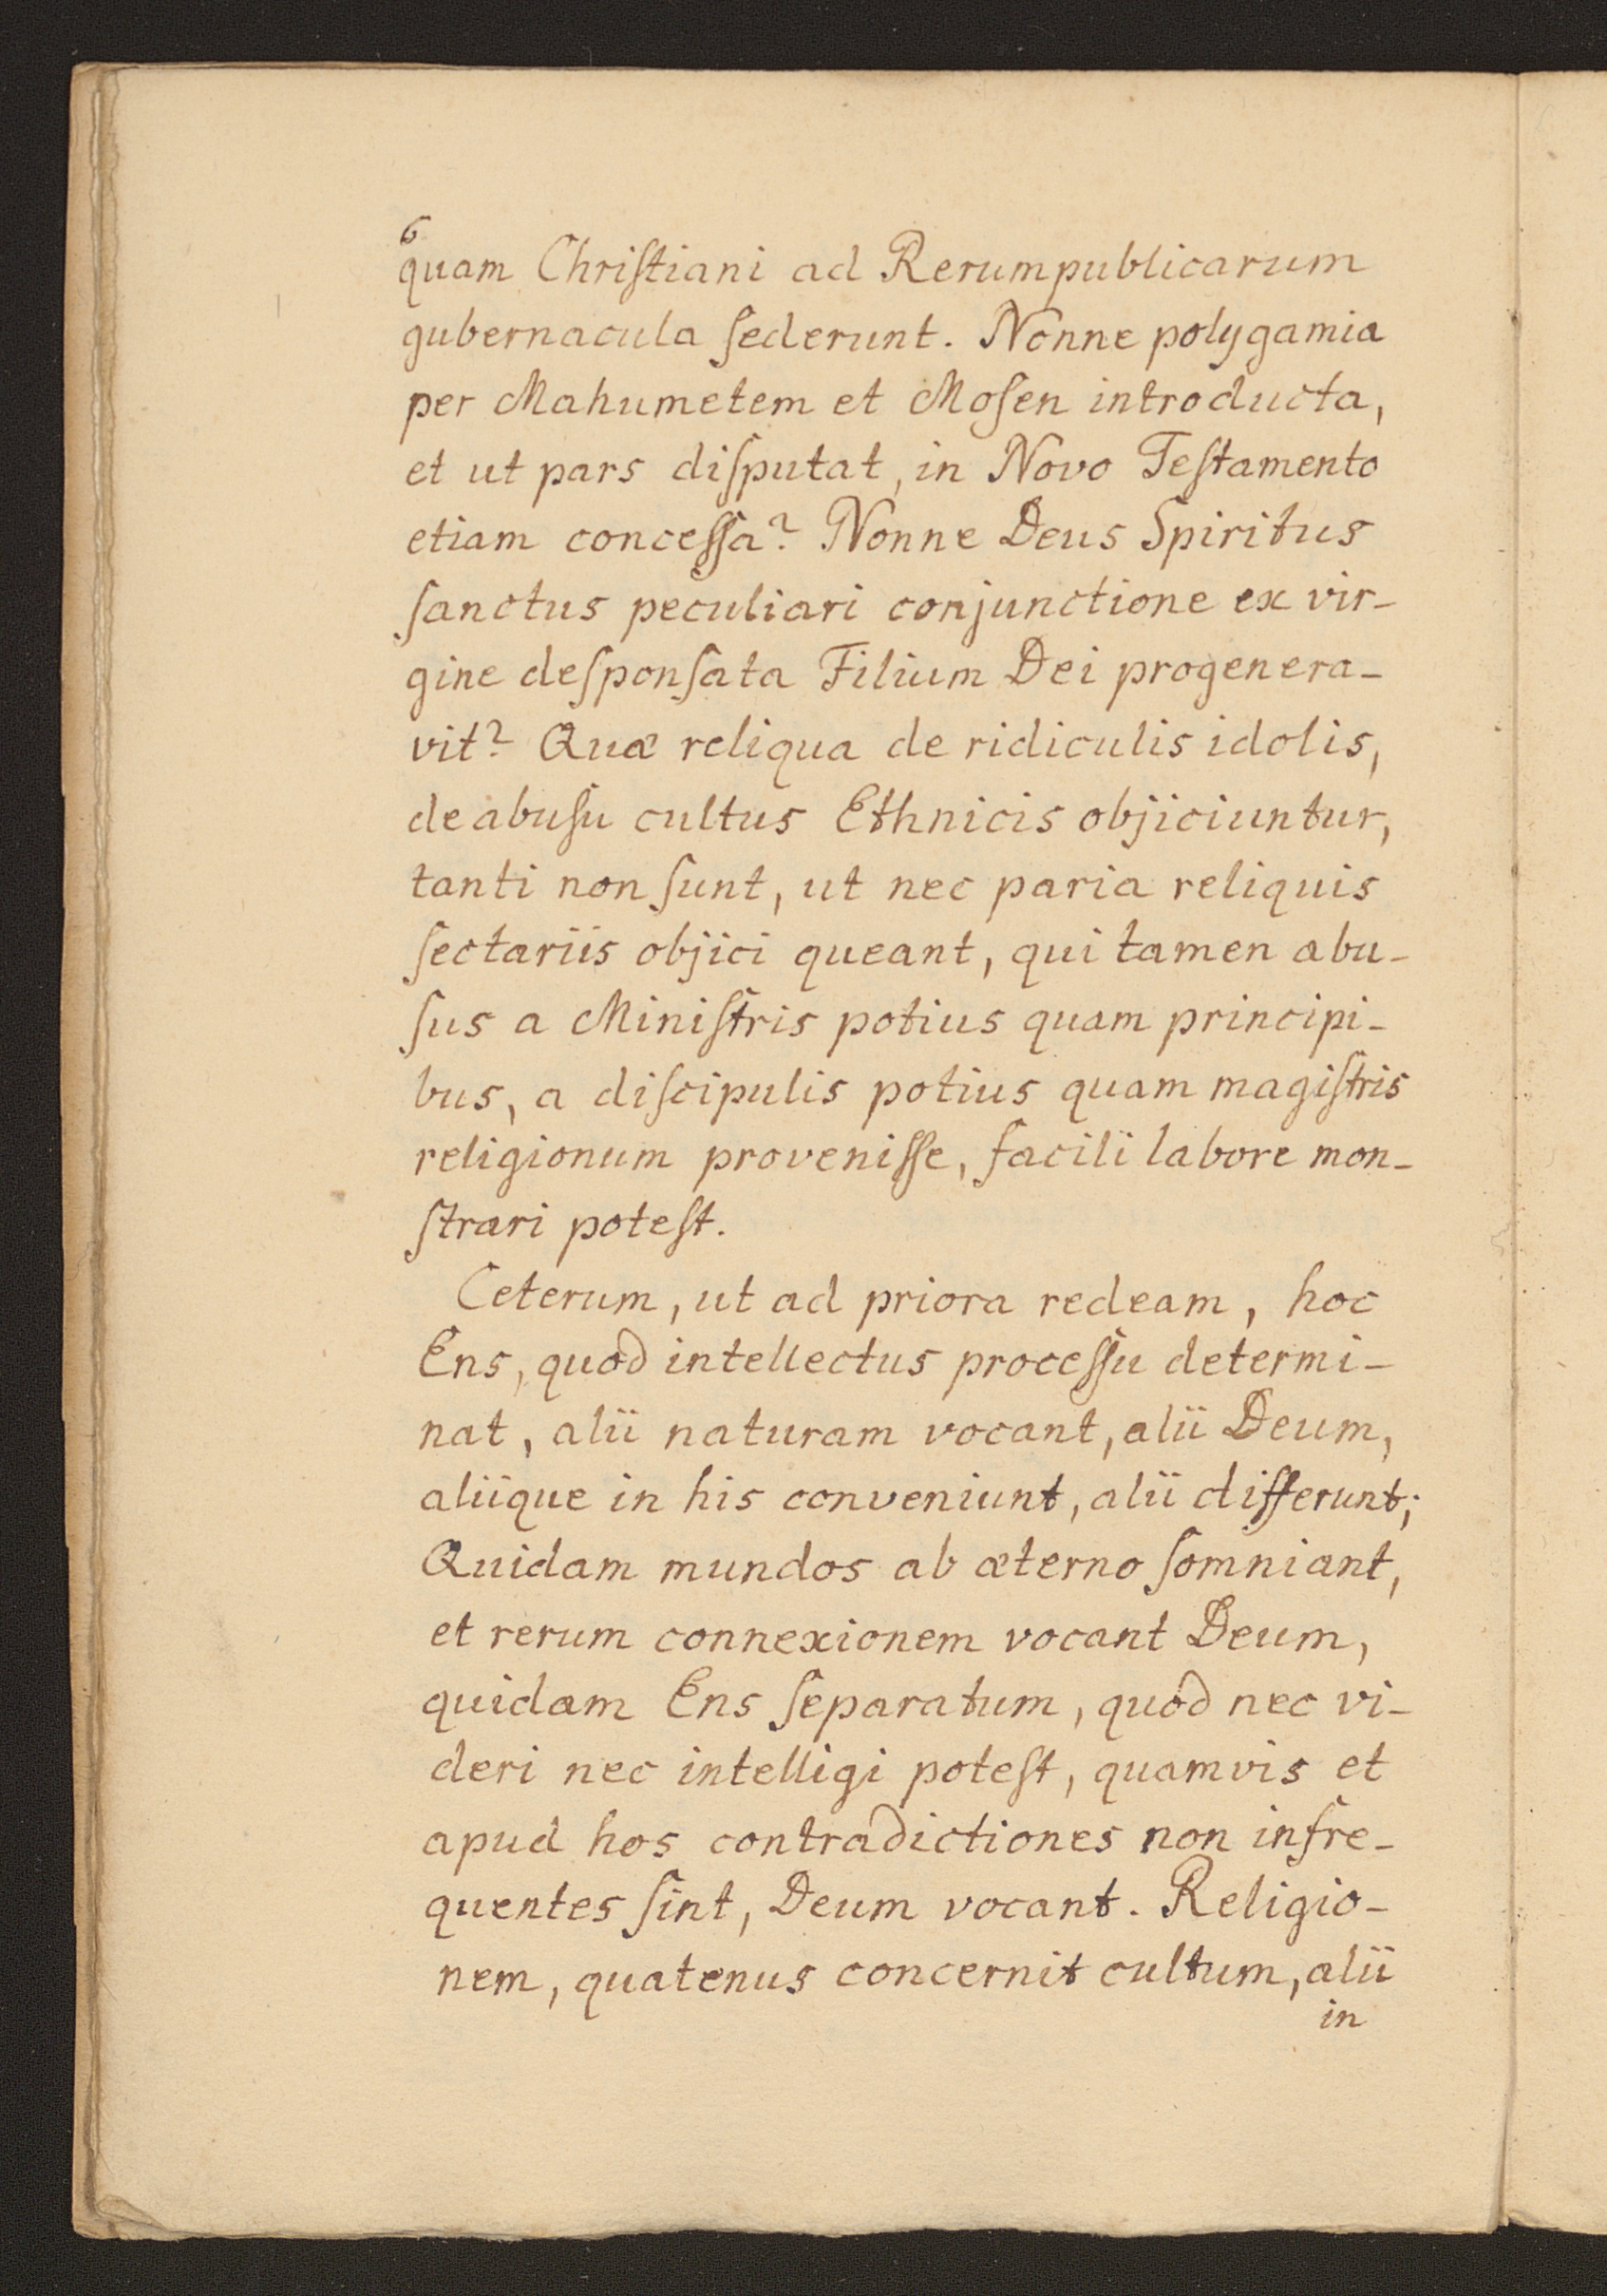 6
quam Chriſtiani ad Rerumpublicarum
gubernacula ſederunt. Nonne polygamia
per Mahumetem et Moſen introducta,
et ut pars diſputat, in Novo Teſtamento
etiam conceſſa? Nonne Deus Spiritus
ſanctus peculiari conjunctione ex vir-
gine deſponſata Filium Dei progenera-
vit? Quæ reliqua de ridiculis idolis,
de abuſu cultus Ethnicis objiciuntur,
tanti non ſunt, ut nec paria reliquis
ſectariis objici queant, qui tamen abu-
ſus a Miniſtris potius quam principi-
bus, a diſcipulis potius quam magiſtris
religionum proveniſſe, facili labore mon-
ſtrari poteſt.
Ceterum, ut ad priora redeam, hoc
Ens, quod intellectus proceſſu determi-
nat, alii naturam vocant, alii Deum,
aliique in his conveniunt, alii differunt;
Quidam mundos ab æterno ſomniant,
et rerum connexionem vocant Deum,
quidam Ens ſeparatum, quod nec vi-
deri nec intelligi poteſt, quamvis et
apud hos contradictiones non infre-
quentes ſint, Deum vocant. Religio-
nem, quatenus concernit cultum, alii
in